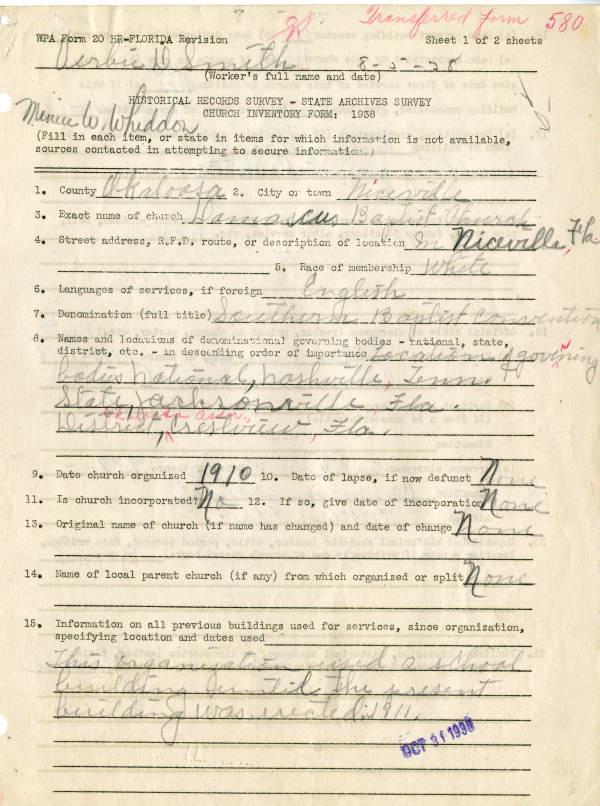 Transferred form 580
WPA Form 20 HR-FLORIDA Revision Sheet 1 of 2 sheets
Verbie D Smith 8-5-38
(Worker's full name and date)
HISTORICAL RECORDS SURVEY - STATE ARCHIVES SURVEY
Minnie W. Wheddon
CHURCH INVENTORY FORM: 1938
(Fill in each item, or state in items for which information is not available,
sources contacted in attempting to secure information.)
1. County Okaloosa 2. City or town Niceville
3. Exact name of church Damascus Baptist Church
4. Street address, R.F.D. route, or description of location In Niceville, Fla
5. Race of membership White
6. Languages of services, if foreign English
7. Denomination (full title) Southern Baptist Convention
8. Names and locations of denominational governing bodies - national, state,
district, etc. - in descending order of importance Location of governing
bodies National, Nashville, Tenn.
State, Jacksonville, Fla.
Okaloosa Assn.,
District, Crestview, Fla.
9. Date church organized 1910 10. Date of lapse, if now defunct None
11. Is church incorporated? No 12. If so, give date of incorporation None
13. Original name of church (if name has changed) and date of change None
14. Name of local parent church (if any) from which organized or split None
15. Information on all previous buildings used for services, since organization,
specifying location and dates used
This organization used a school
building until the present
building was erected. 1911.
OCT 31 1938